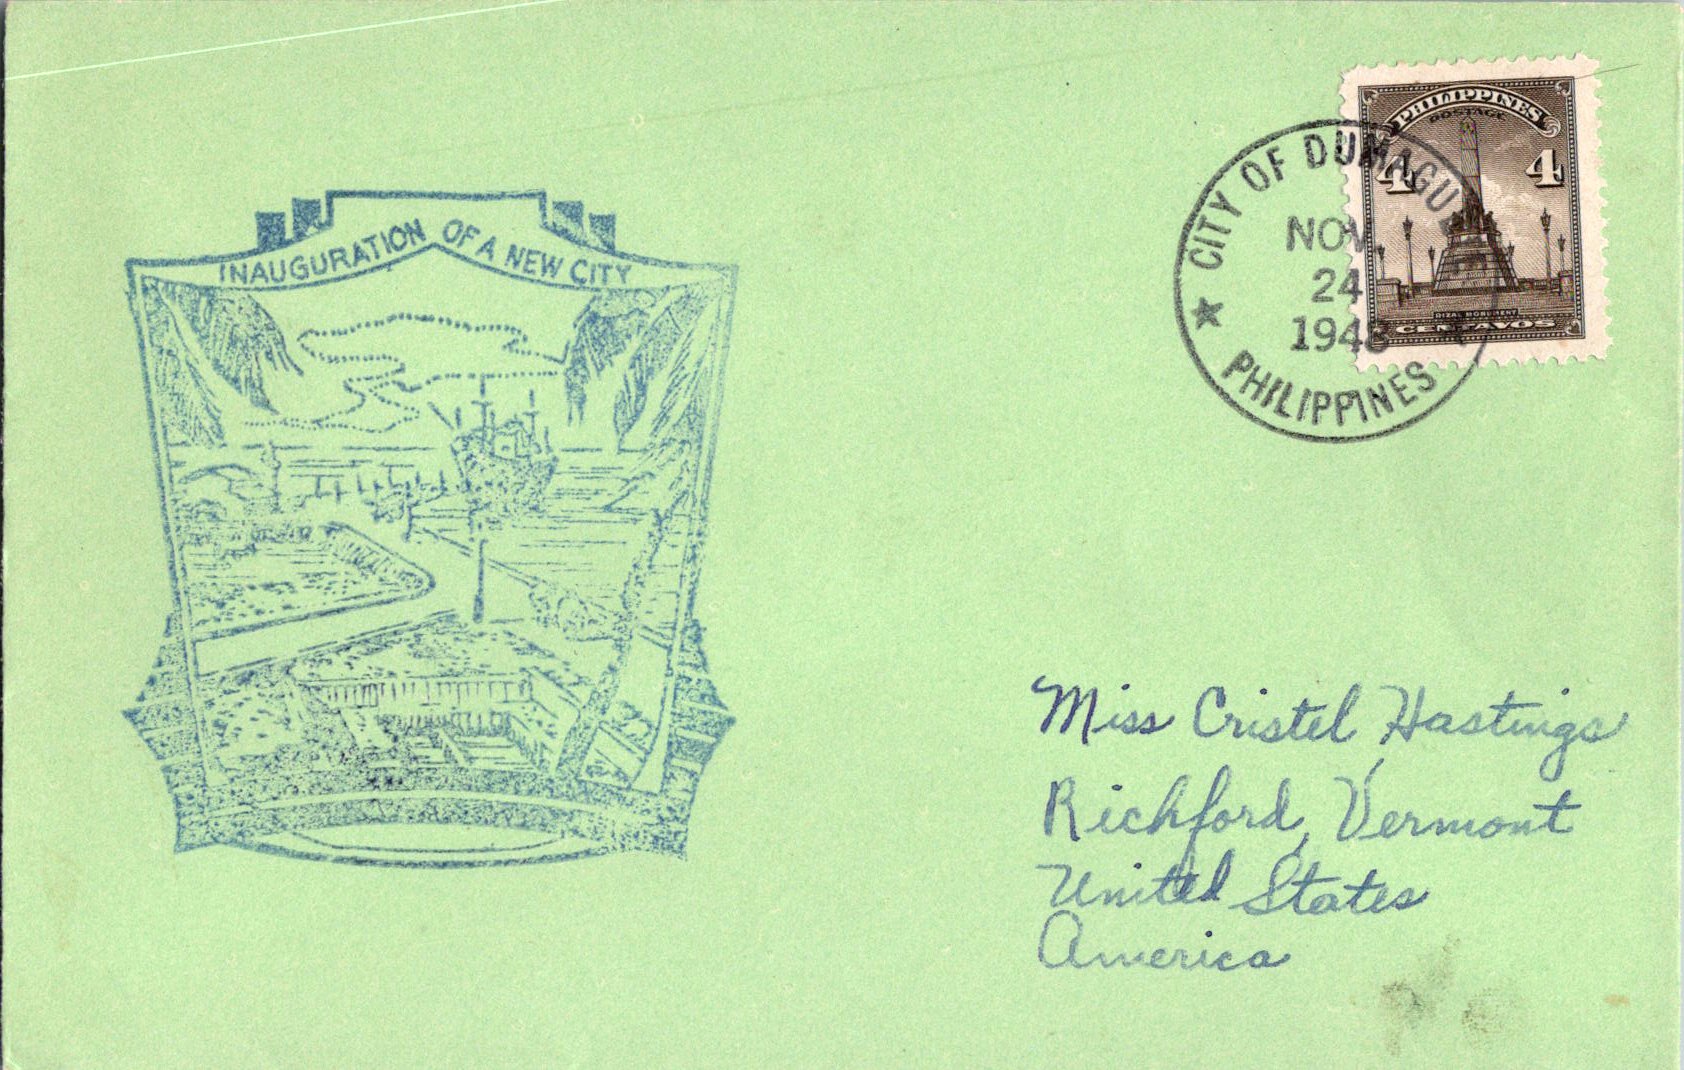 INAUGURATION OF A NEW CITY
PHILIPPINES
POSTAGE
4 4
RIZAL MONUMENT
CENTAVOS
CITY OF DUMAGUE
NOV
24
1948
PHILIPPINES
Miss Cristel Hastings
Richford, Vermont
United States
America